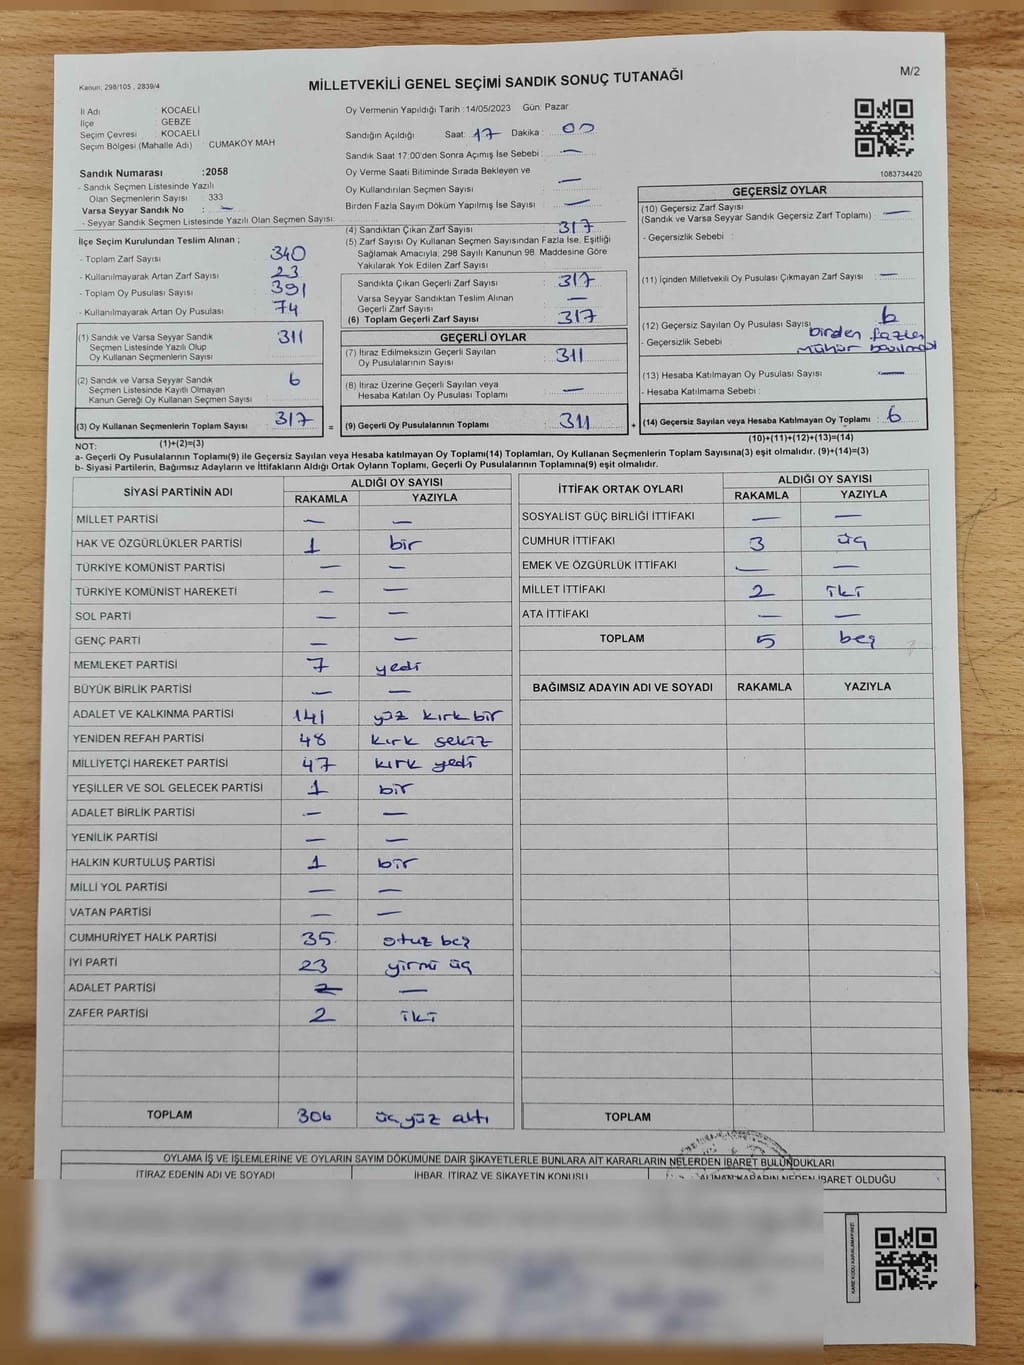 Kanun: 298/105 , 2839/4
MİLLETVEKİLİ GENEL SEÇİMİ SANDIK SONUÇ TUTANAĞI
M/2
İl Adı : KOCAELİ
İlçe : GEBZE
Seçim Çevresi : KOCAELİ
Seçim Bölgesi (Mahalle Adı) CUMAKÖY MAH
Sandık Numarası :2058
- Sandık Seçmen Listesinde Yazılı
Olan Seçmenlerin Sayısı 333
Varsa Seyyar Sandık No : —
- Seyyar Sandık Seçmen Listesinde Yazılı Olan Seçmen Sayısı:
Oy Vermenin Yapıldığı Tarih :14/05/2023 Gün: Pazar
Sandığın Açıldığı Saat: 17 Dakika : 00
Sandık Saat 17:00'den Sonra Açımış İse Sebebi : —
Oy Verme Saati Bitiminde Sırada Bekleyen ve
Oy Kullandırılan Seçmen Sayısı : —
Birden Fazla Sayım Döküm Yapılmış İse Sayısı : —
1083734420
İlçe Seçim Kurulundan Teslim Alınan ;
- Toplam Zarf Sayısı : 340
- Kullanılmayarak Artan Zarf Sayısı : 23
- Toplam Oy Pusulası Sayısı : 391
- Kullanılmayarak Artan Oy Pusulası : 74
(1) Sandık ve Varsa Seyyar Sandık 311
Seçmen Listesinde Yazılı Olup
Oy Kullanan Seçmenlerin Sayısı
(2) Sandık ve Varsa Seyyar Sandık 6
Seçmen Listesinde Kayıtlı Olmayan
Kanun Gereği Oy Kullanan Seçmen Sayısı
(3) Oy Kullanan Seçmenlerin Toplam Sayısı : 317
(4) Sandıktan Çıkan Zarf Sayısı : 317
(5) Zarf Sayısı Oy Kullanan Seçmen Sayısından Fazla İse, Eşitliği
Sağlamak Amacıyla; 298 Sayılı Kanunun 98. Maddesine Göre
Yakılarak Yok Edilen Zarf Sayısı
Sandıkta Çıkan Geçerli Zarf Sayısı : 317
Varsa Seyyar Sandıktan Teslim Alınan —
Geçerli Zarf Sayısı
(6) Toplam Geçerli Zarf Sayısı : 317
GEÇERLİ OYLAR
(7) İtiraz Edilmeksizin Geçerli Sayılan 311
Oy Pusulalarının Sayısı
(8) İtiraz Üzerine Geçerli Sayılan veya —
Hesaba Katılan Oy Pusulası Toplamı
= (9) Geçerli Oy Pusulalarının Toplamı : 311 +
GEÇERSİZ OYLAR
(10) Geçersiz Zarf Sayısı
(Sandık ve Varsa Seyyar Sandık Geçersiz Zarf Toplamı) : —
- Geçersizlik Sebebi :
(11) İçinden Milletvekili Oy Pusulası Çıkmayan Zarf Sayısı : —
(12) Geçersiz Sayılan Oy Pusulası Sayısı : 6
- Geçersizlik Sebebi : birden fazla
mühür basılması
(13) Hesaba Katılmayan Oy Pusulası Sayısı : —
- Hesaba Katılmama Sebebi :
(14) Geçersiz Sayılan veya Hesaba Katılmayan Oy Toplamı : 6
NOT: (1)+(2)=(3) (10)+(11)+(12)+(13)=(14)
a- Geçerli Oy Pusulalarının Toplamı(9) ile Geçersiz Sayılan veya Hesaba katılmayan Oy Toplamı(14) Toplamları, Oy Kullanan Seçmenlerin Toplam Sayısına(3) eşit olmalıdır. (9)+(14)=(3)
b- Siyasi Partilerin, Bağımsız Adayların ve İttifakların Aldığı Ortak Oyların Toplamı, Geçerli Oy Pusulalarının Toplamına(9) eşit olmalıdır.
SİYASİ PARTİNİN ADI ALDIĞI OY SAYISI
RAKAMLA YAZIYLA
MİLLET PARTİSİ — —
HAK VE ÖZGÜRLÜKLER PARTİSİ 1 bir
TÜRKİYE KOMÜNİST PARTİSİ — —
TÜRKİYE KOMÜNİST HAREKETİ — —
SOL PARTİ — —
GENÇ PARTİ — —
MEMLEKET PARTİSİ 7 yedi
BÜYÜK BİRLİK PARTİSİ — —
ADALET VE KALKINMA PARTİSİ 141 yüz kırk bir
YENİDEN REFAH PARTİSİ 48 kırk sekiz
MİLLİYETÇİ HAREKET PARTİSİ 47 kırk yedi
YEŞİLLER VE SOL GELECEK PARTİSİ 1 bir
ADALET BİRLİK PARTİSİ — —
YENİLİK PARTİSİ — —
HALKIN KURTULUŞ PARTİSİ 1 bir
MİLLİ YOL PARTİSİ — —
VATAN PARTİSİ — —
CUMHURİYET HALK PARTİSİ 35 otuz beş
İYİ PARTİ 23 yirmi üç
ADALET PARTİSİ — —
ZAFER PARTİSİ 2 iki
TOPLAM 306 üç yüz altı
İTTİFAK ORTAK OYLARI ALDIĞI OY SAYISI
RAKAMLA YAZIYLA
SOSYALİST GÜÇ BİRLİĞİ İTTİFAKI — —
CUMHUR İTTİFAKI 3 üç
EMEK VE ÖZGÜRLÜK İTTİFAKI — —
MİLLET İTTİFAKI 2 iki
ATA İTTİFAKI — —
TOPLAM 5 beş
BAĞIMSIZ ADAYIN ADI VE SOYADI RAKAMLA YAZIYLA
TOPLAM
OYLAMA İŞ VE İŞLEMLERİNE VE OYLARIN SAYIM DÖKÜMÜNE DAİR ŞİKAYETLERLE BUNLARA AİT KARARLARIN NELERDEN İBARET BULUNDUKLARI
İTİRAZ EDENİN ADI VE SOYADI İHBAR, İTİRAZ VE ŞİKAYETİN KONUSU ALINAN KARARIN NEDEN İBARET OLDUĞU